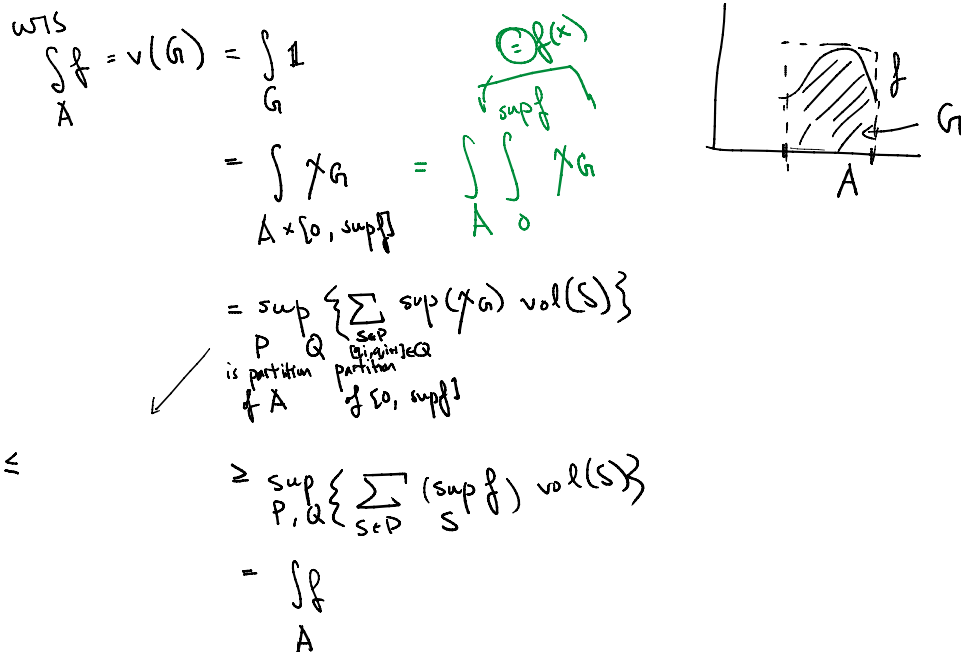 WTS
∫_A f = v(G) = ∫_G 1
= ∫_{A × [0, sup f]} χ_G = ∫_A ∫_0^{sup f} χ_G
= f(x)
f
G
A
= sup_{P Q} { Σ_{S∈P [q_i, q_{i+1}]∈Q} sup(χ_G) vol(S) }
is partition partition
of A of [0, sup f]
≤ ≥ sup_{P, Q} { Σ_{S∈P} (sup_S f) vol(S) }
= ∫_A f